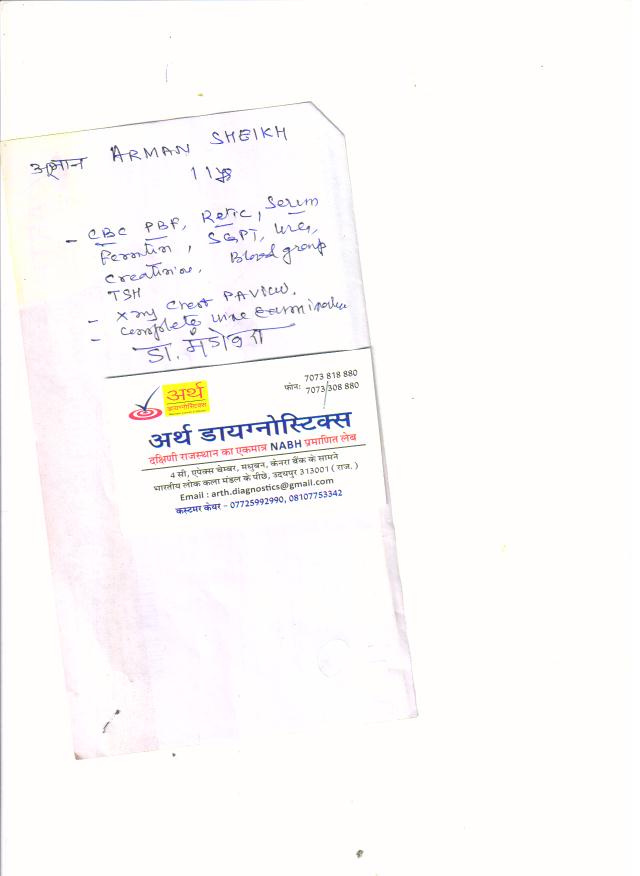 ARMAN SHEIKH
11
- CBC PBF, Retic, Serum
Ferritin, SGPT, Urea,
Creatinine, Blood group
TSH
- Xray Chest PA View.
- Complete Urine
डा.
अर्थ
डायग्नोस्टिक्स
फोन: 7073 818 880
7073 308 880
अर्थ डायग्नोस्टिक्स
दक्षिणी राजस्थान का एकमात्र NABH प्रमाणित लेब
4 सी, एपेक्स चेम्बर, मधुबन, केनरा बैंक के सामने
भारतीय लोक कला मंडल के पीछे, उदयपुर 313001 ( राज. )
Email : arth.diagnostics@gmail.com
कस्टमर केयर - 07725992990, 08107753342